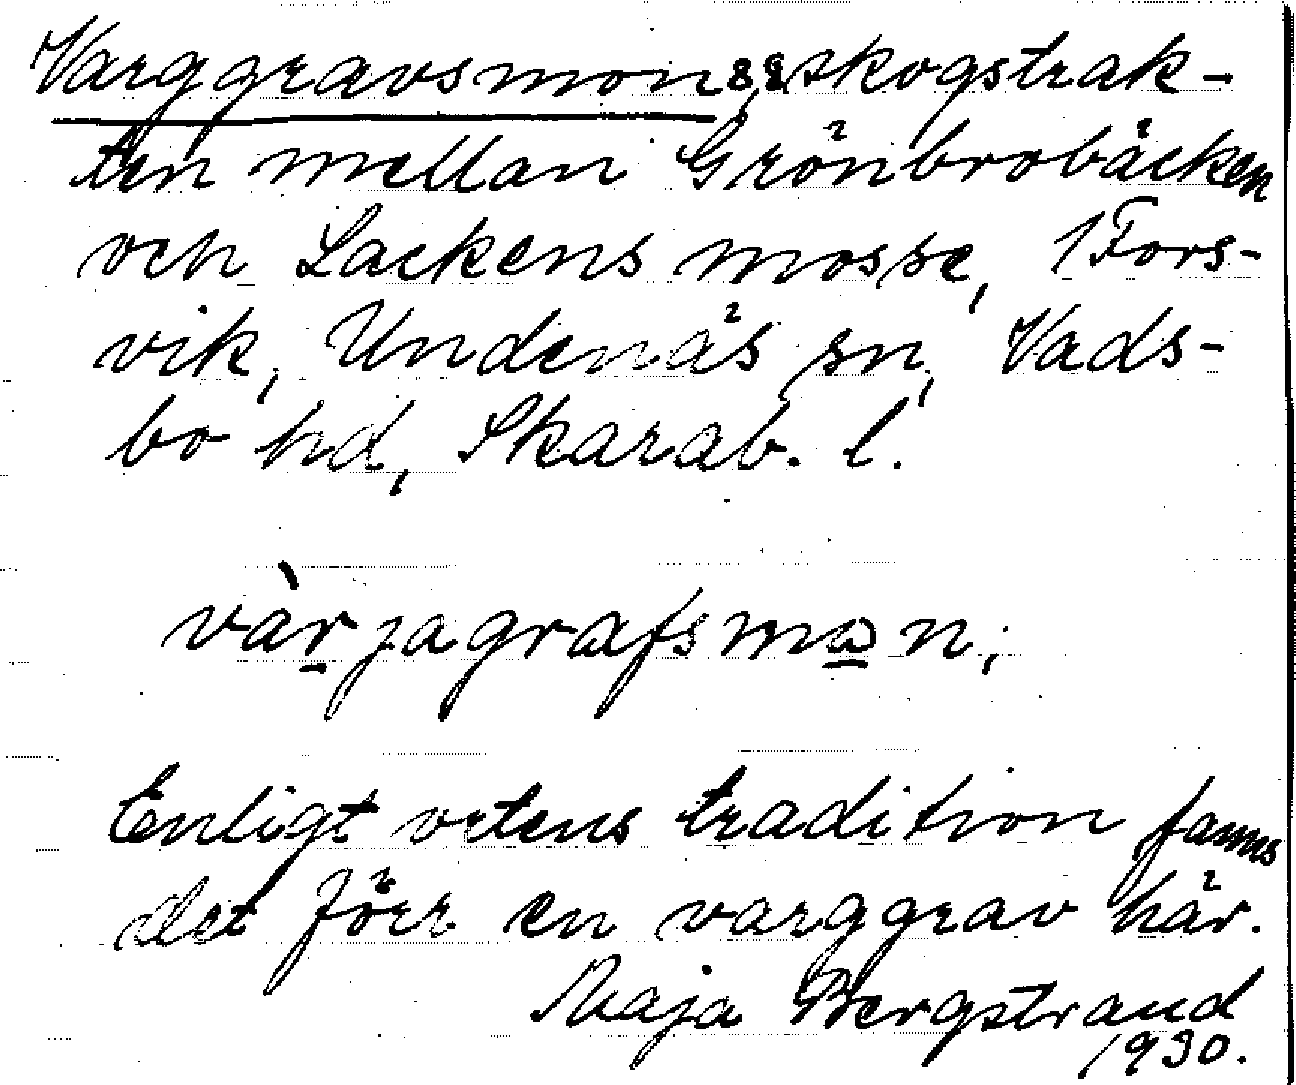 Varggravsmon 89, skogstrak-
ten mellan Grönbrobäcken
och Lackens mosse, 1 Fors-
vik, Undenäs sn, Vads-
bo hd, Skarab. l.
vàrjagrafsmon;
Enligt ortens tradition fanns
det förr en varggrav här.
Maja Bergstrand
1930.